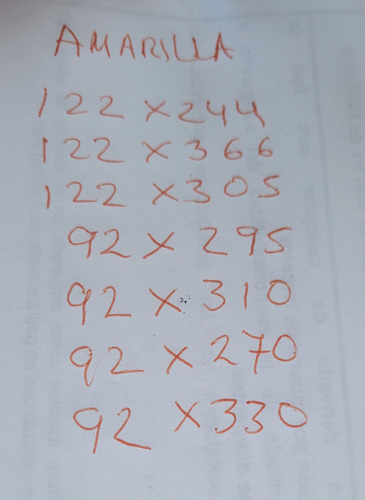 AMARILLA
122 x 244
122 x 366
122 x 305
92 x 295
92 x 310
92 x 270
92 x 330